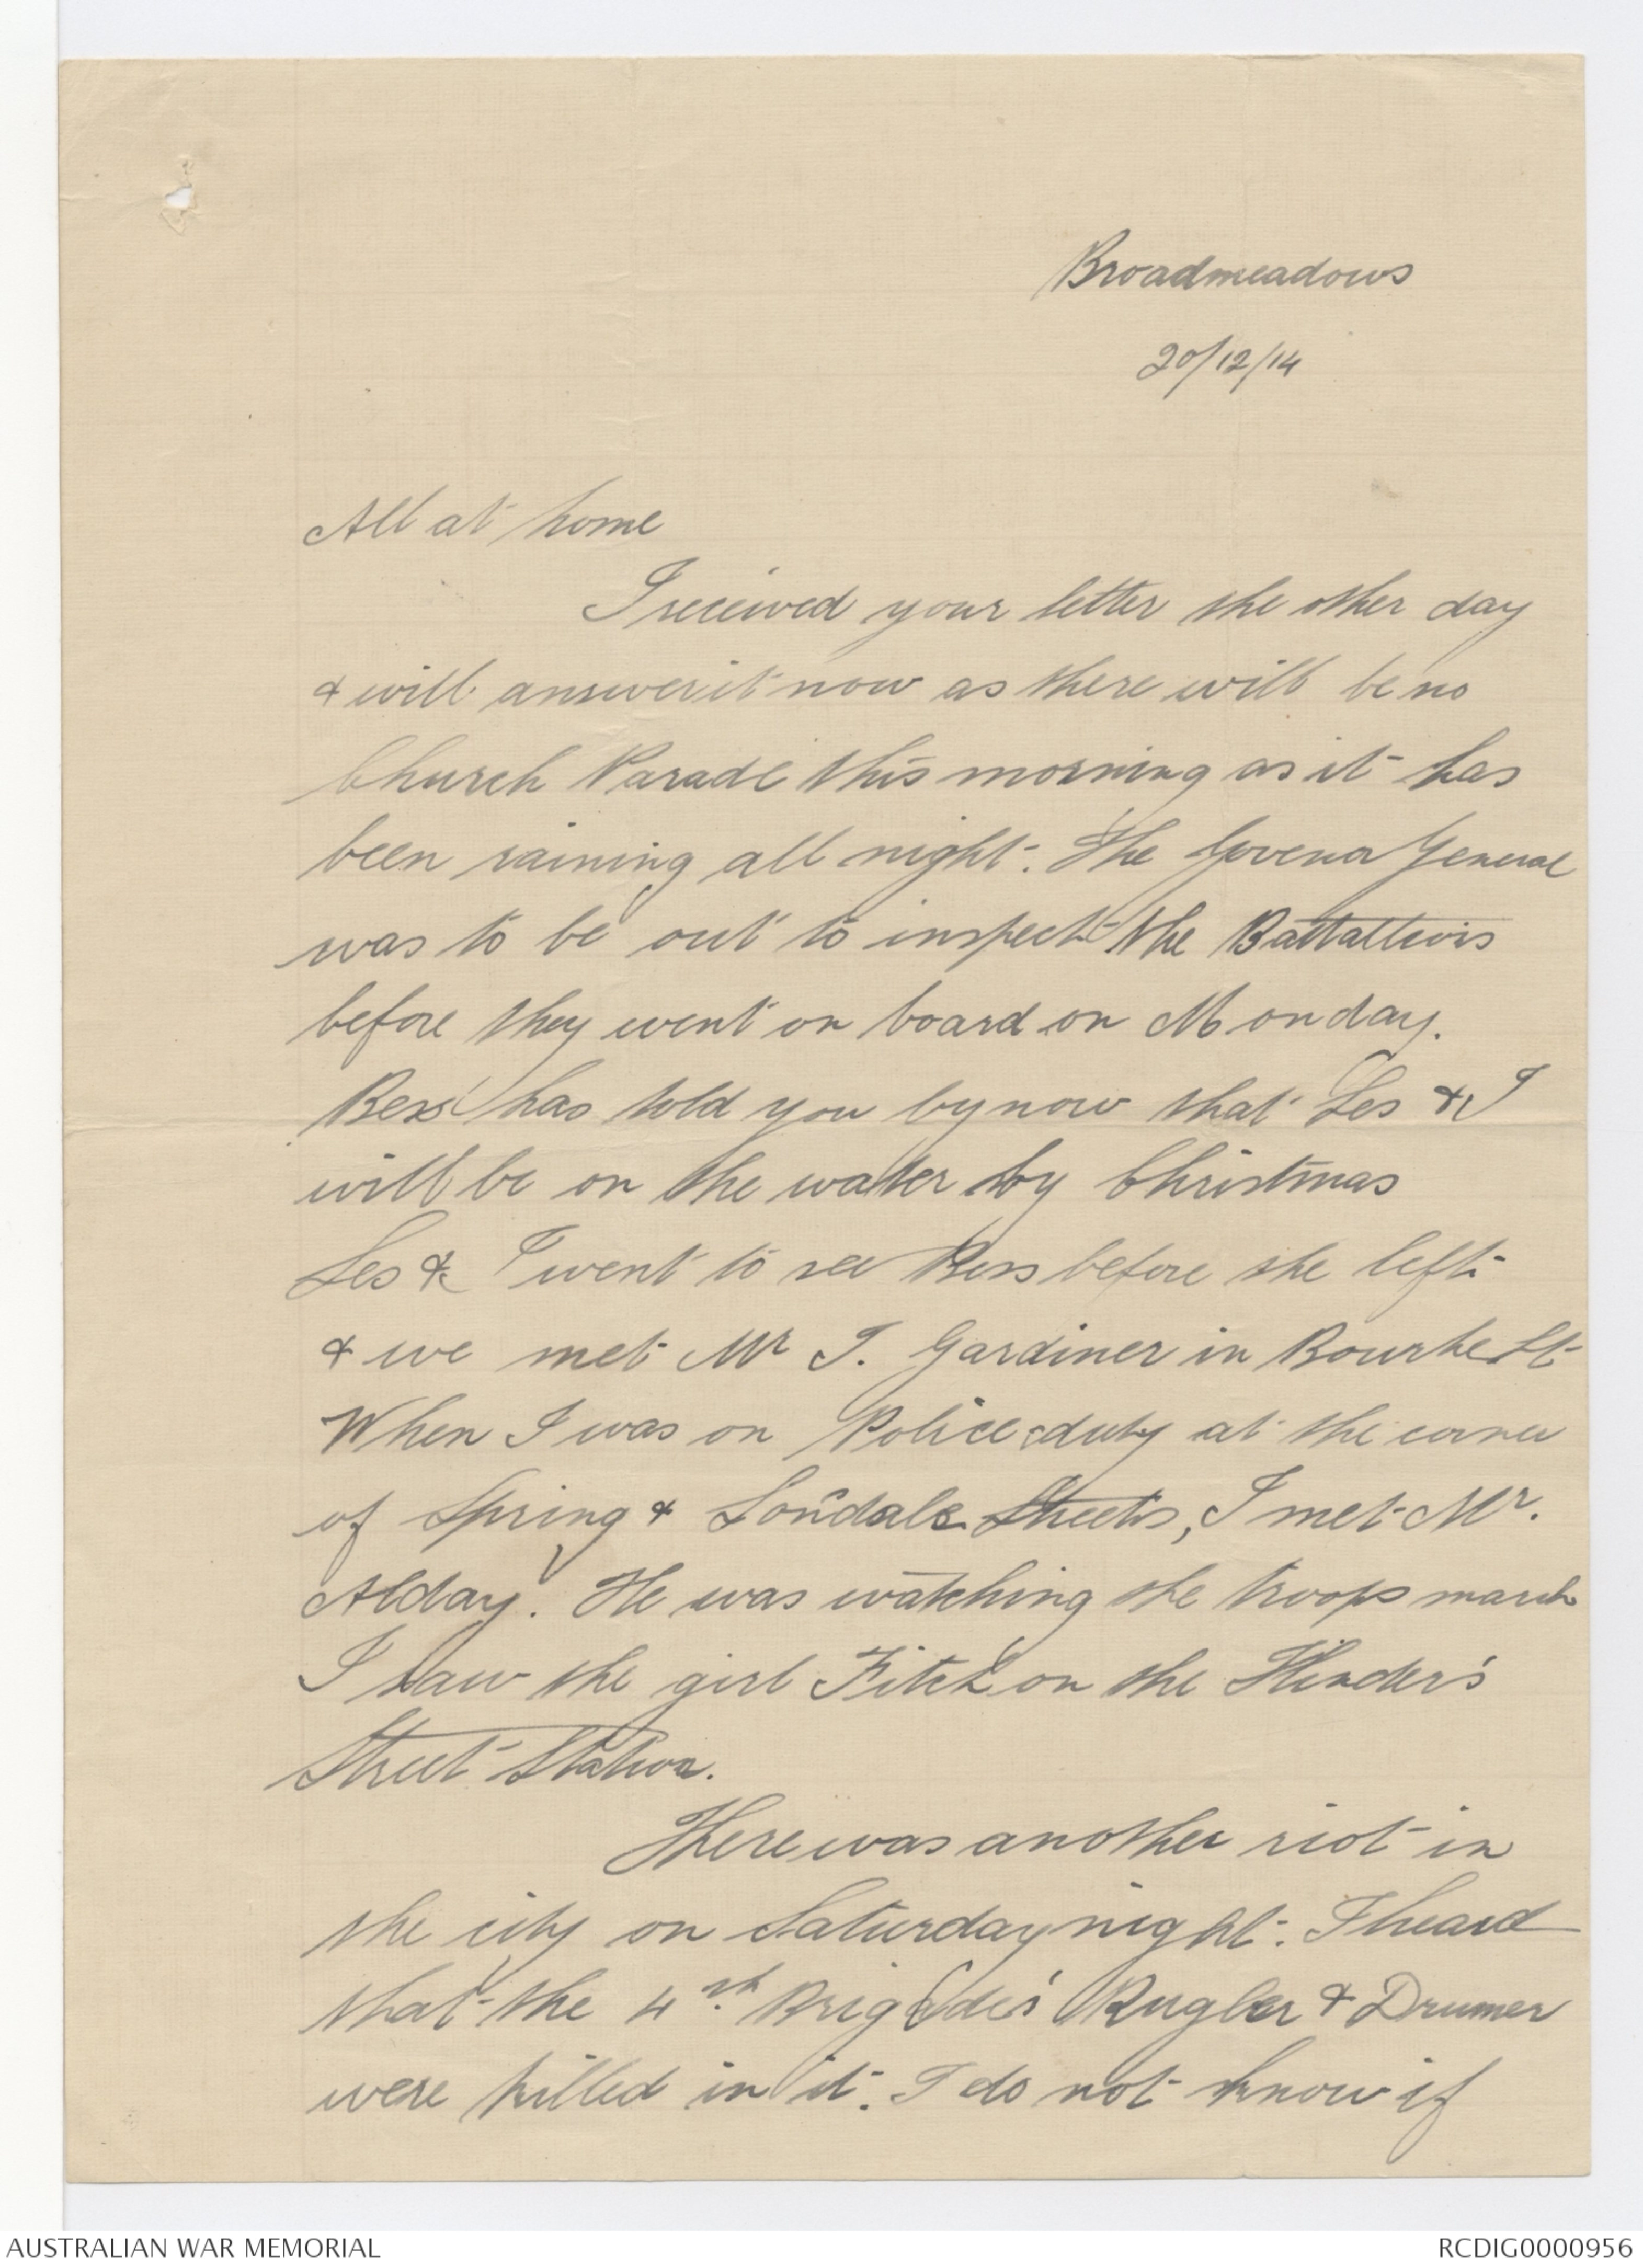 Broadmeadows
20/12/14
All at home
I received your letter the other day
& will answer it now as there will be no
Church Parade this morning as it has
been raining all night. The Govenor General
was to be out to inspect the Battallions
before they went on board on Monday.
Bess has told you by now that Les & I
will be on the water by Christmas
Les & I went to see Bess before she left
& we met Mr J. Gardiner in Bourke St
When I was on Police duty at the corner
of Spring & Londale Streets, I met Mr.
Alday. He was watching the troops march
I saw the girl Fitch on the Flinder's
Street Station.
There was another riot in
the city on Saturday night. I heard
that the 4th Brigade's Bugler & Drumer
were killed in it. I do not know if
AUSTRALIAN WAR MEMORIAL
RCDIG0000956